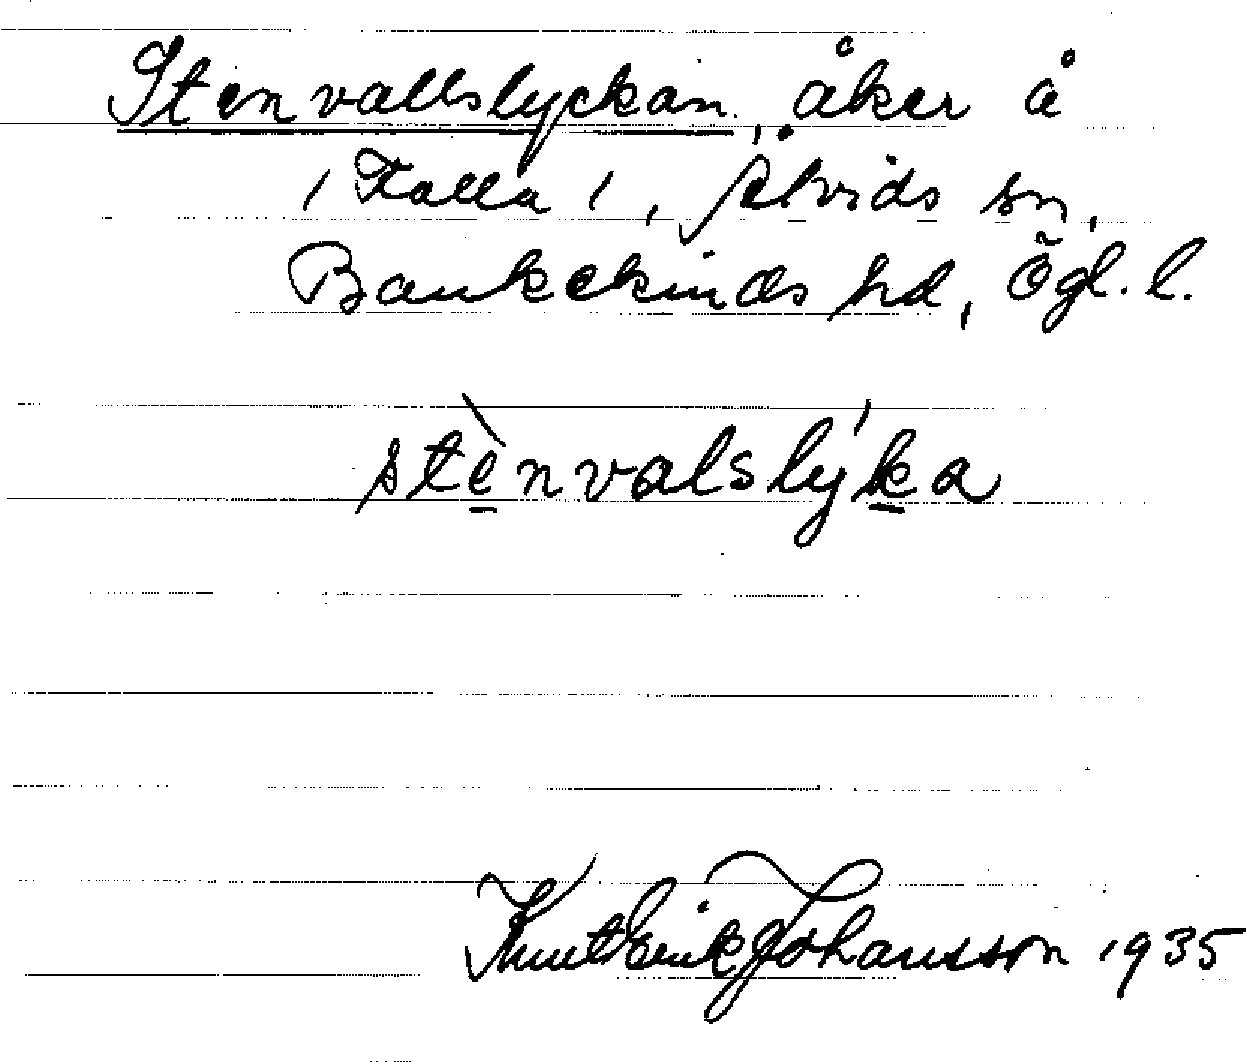 Stenvallslyckan, åker å
/ Falla /, Åtvids sn,
Bankekinds hd, Ögl. l.
stènvalslýka
Knut Erik Johansson 1935